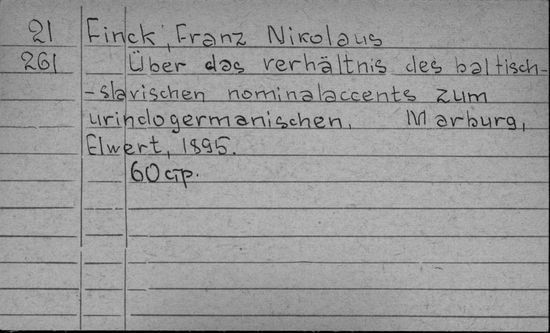 21 Finck, Franz Nikolaus
261 Über das verhältnis des baltisch-
-slavischen nominalaccents zum
urindogermanischen. Marburg,
Elwert, 1895.
60 стр.